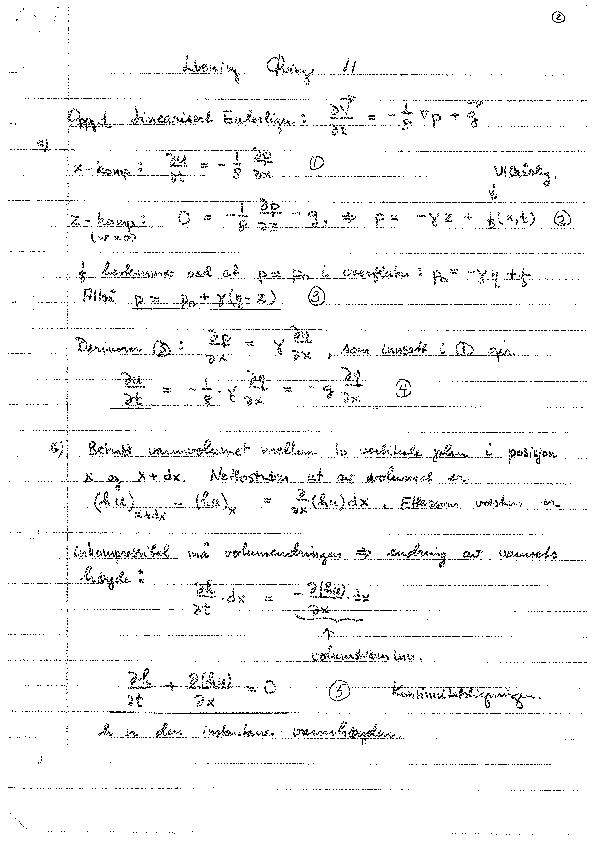 ②
Løsning Øving 11
Oppg 1 Linearisert Eulerlign: ∂V⃗/∂t = -1/ρ ∇p + g⃗
a)
x-komp: ∂u/∂t = -1/ρ ∂p/∂x ①
Vilkårlig
z-komp: 0 = -1/ρ ∂p/∂z - g, ⇒ p = -γz + f(x,t) ②
(w=0)
f bestemmes ved at p = p₀ i overflaten: p₀ = -γη + f
Altså p = p₀ + γ(η - z) ③
Deriverer ③: ∂p/∂x = γ ∂η/∂x, som innsatt i ① gir
∂u/∂t = -1/ρ · γ ∂η/∂x = -g ∂η/∂x ④
b) Betrakt vannvolumet mellom to vertikale plan i posisjon
x og x+dx. Nettostrøm ut av volumet er
(hu)x+dx - (hu)x = ∂/∂x (hu) dx. Ettersom væsken er
inkompressibel må volumendringen ⇒ endring av vannets
høyde:
∂h/∂t · dx = - ∂(hu)/∂x · dx
↑
volumstrøm inn.
∂h/∂t + ∂(hu)/∂x = 0 ⑤ Kontinuitetsligningen.
h er den instantane vannhøyden